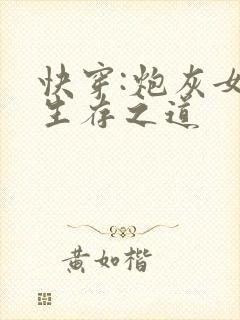 快穿:炮灰女
生存之道
黄如楷